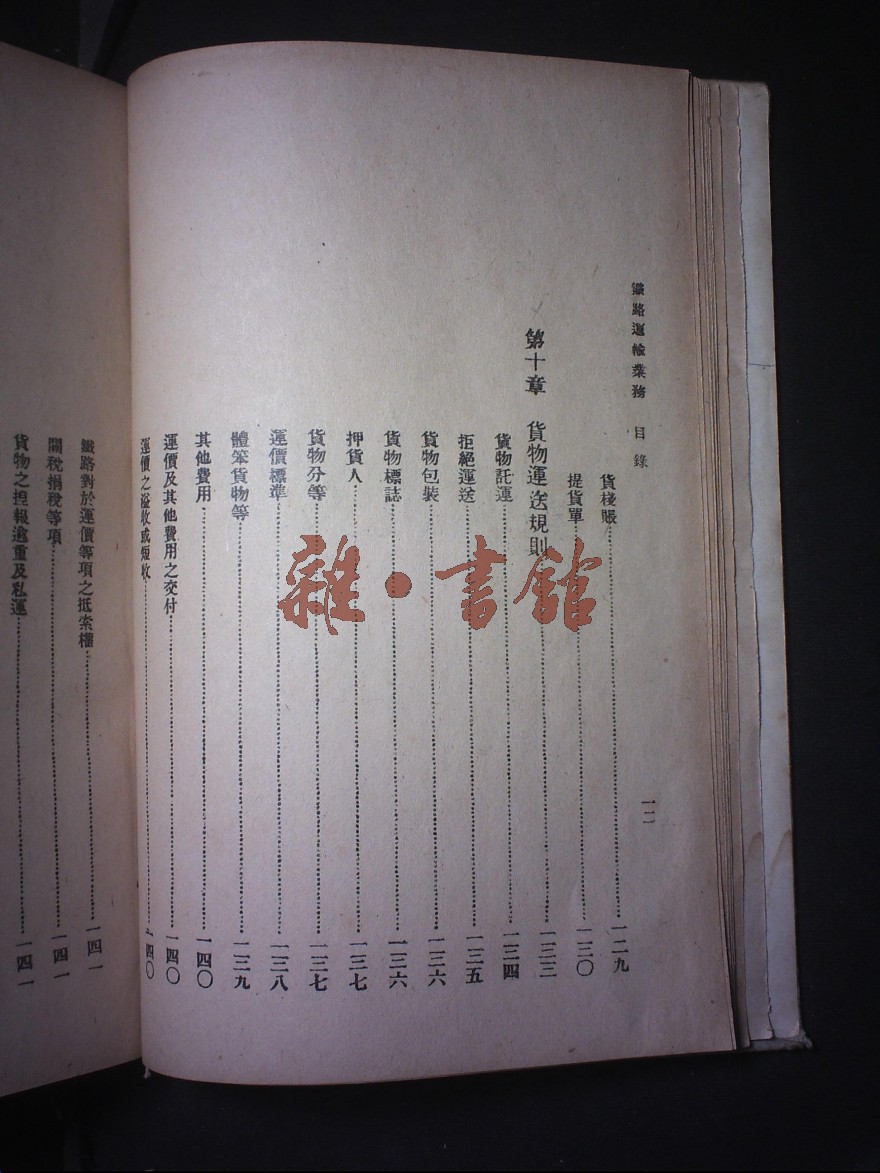 鐵路運輸業務　目錄
一二
貨棧賬……一二九
提貨單……一三〇
第十章　貨物運送規則……一三三
貨物託運……一三四
拒絕運送……一三五
貨物包裝……一三六
貨物標誌……一三六
押貨人……一三七
貨物分等……一三七
運價標準……一三八
體笨貨物等……一三九
其他費用……一四〇
運價及其他費用之交付……一四〇
運價之溢收或短收……一四〇
鐵路對於運價等項之抵索權……一四一
關稅捐稅等項……一四一
貨物之捏報逾重及私運……一四一
雜·書館